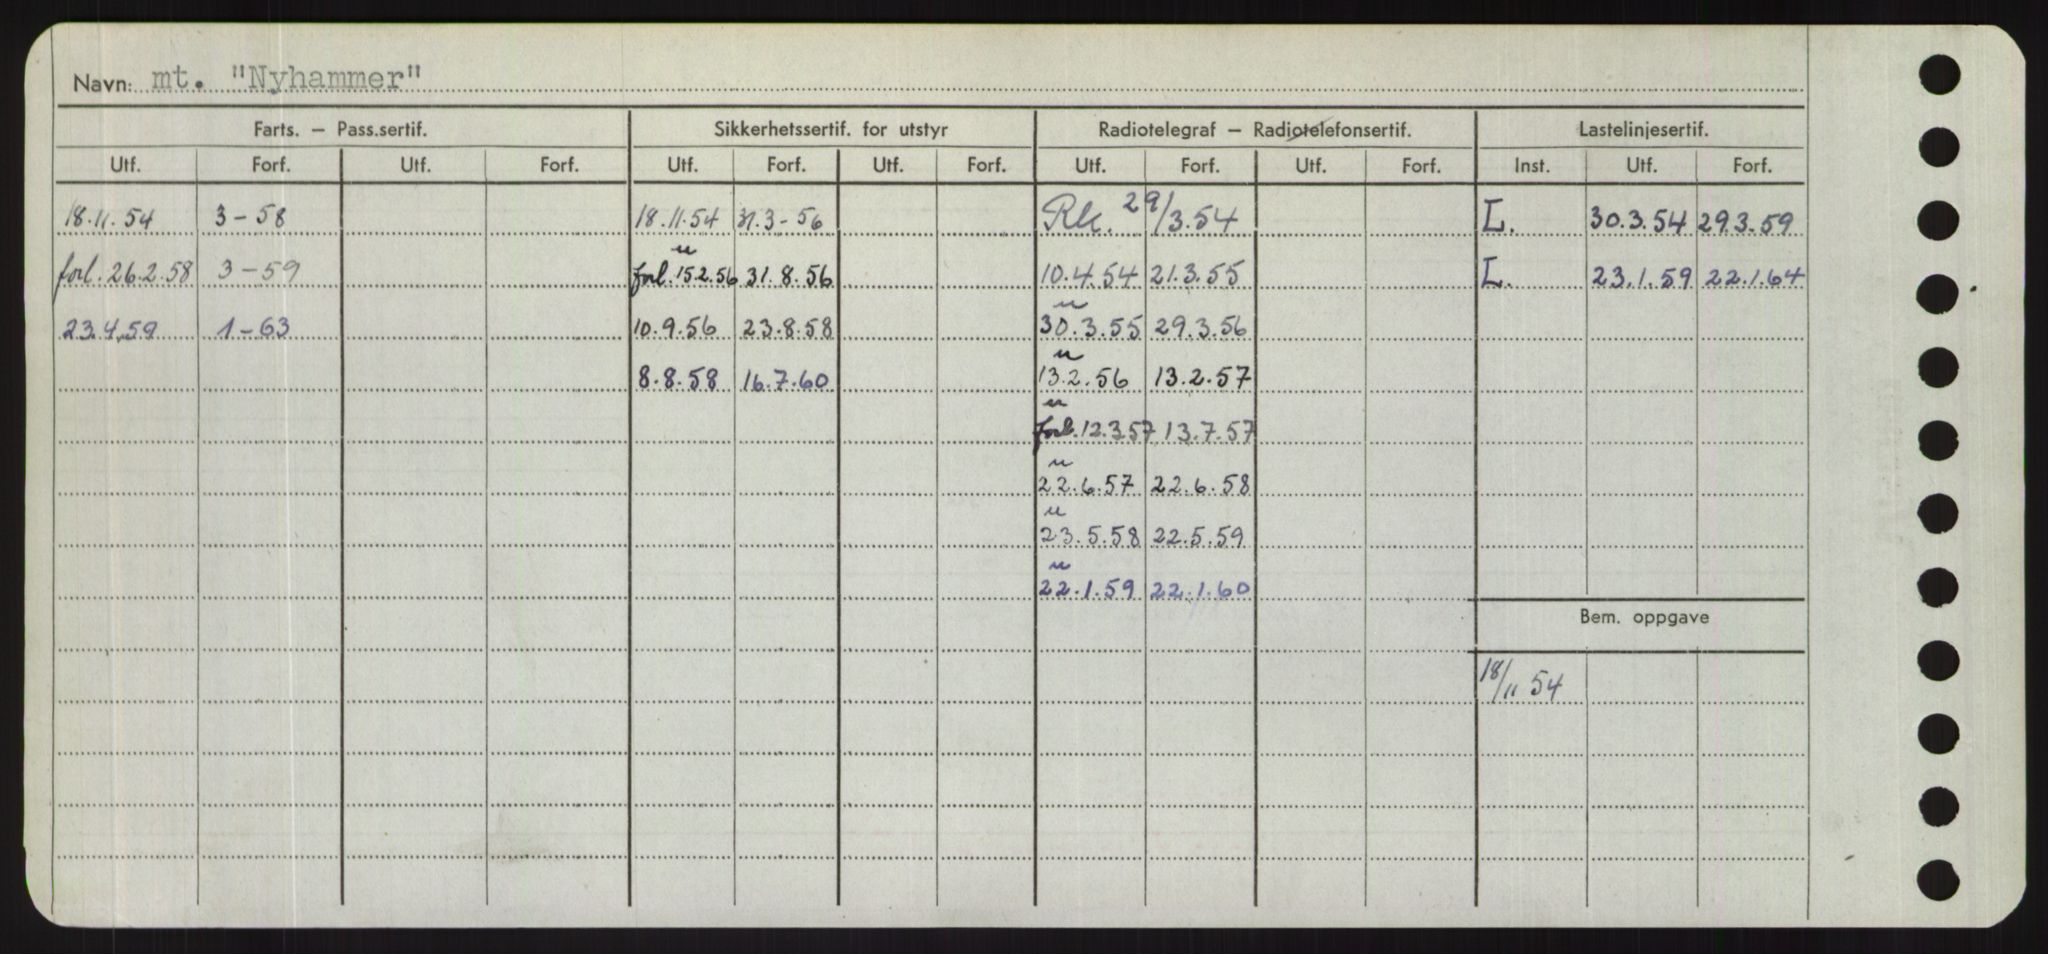 Navn: mt. "Nyhammer"
Farts. — Pass.sertif. Sikkerhetssertif. for utstyr Radiotelegraf — Radiotelefonsertif. Lastelinjesertif.
Utf. Forf. Utf. Forf. Utf. Forf. Utf. Forf. Utf. Forf. Utf. Forf. Inst. Utf. Forf.
18.11.54 3-58 18.11.54 31.3-56 Rk. 29/3.54 L. 30.3.54 29.3.59
u
forl. 26.2.58 3-59 forl. 15.2.56 31.8.56 10.4.54 21.3.55 L. 23.1.59 22.1.64
u
23.4.59 1-63 10.9.56 23.8.58 30.3.55 29.3.56
u
8.8.58 16.7.60 13.2.56 13.2.57
u
forl. 12.3.57 13.7.57
u
22.6.57 22.6.58
u
23.5.58 22.5.59
u
22.1.59 22.1.60
Bem. oppgave
18/11 54